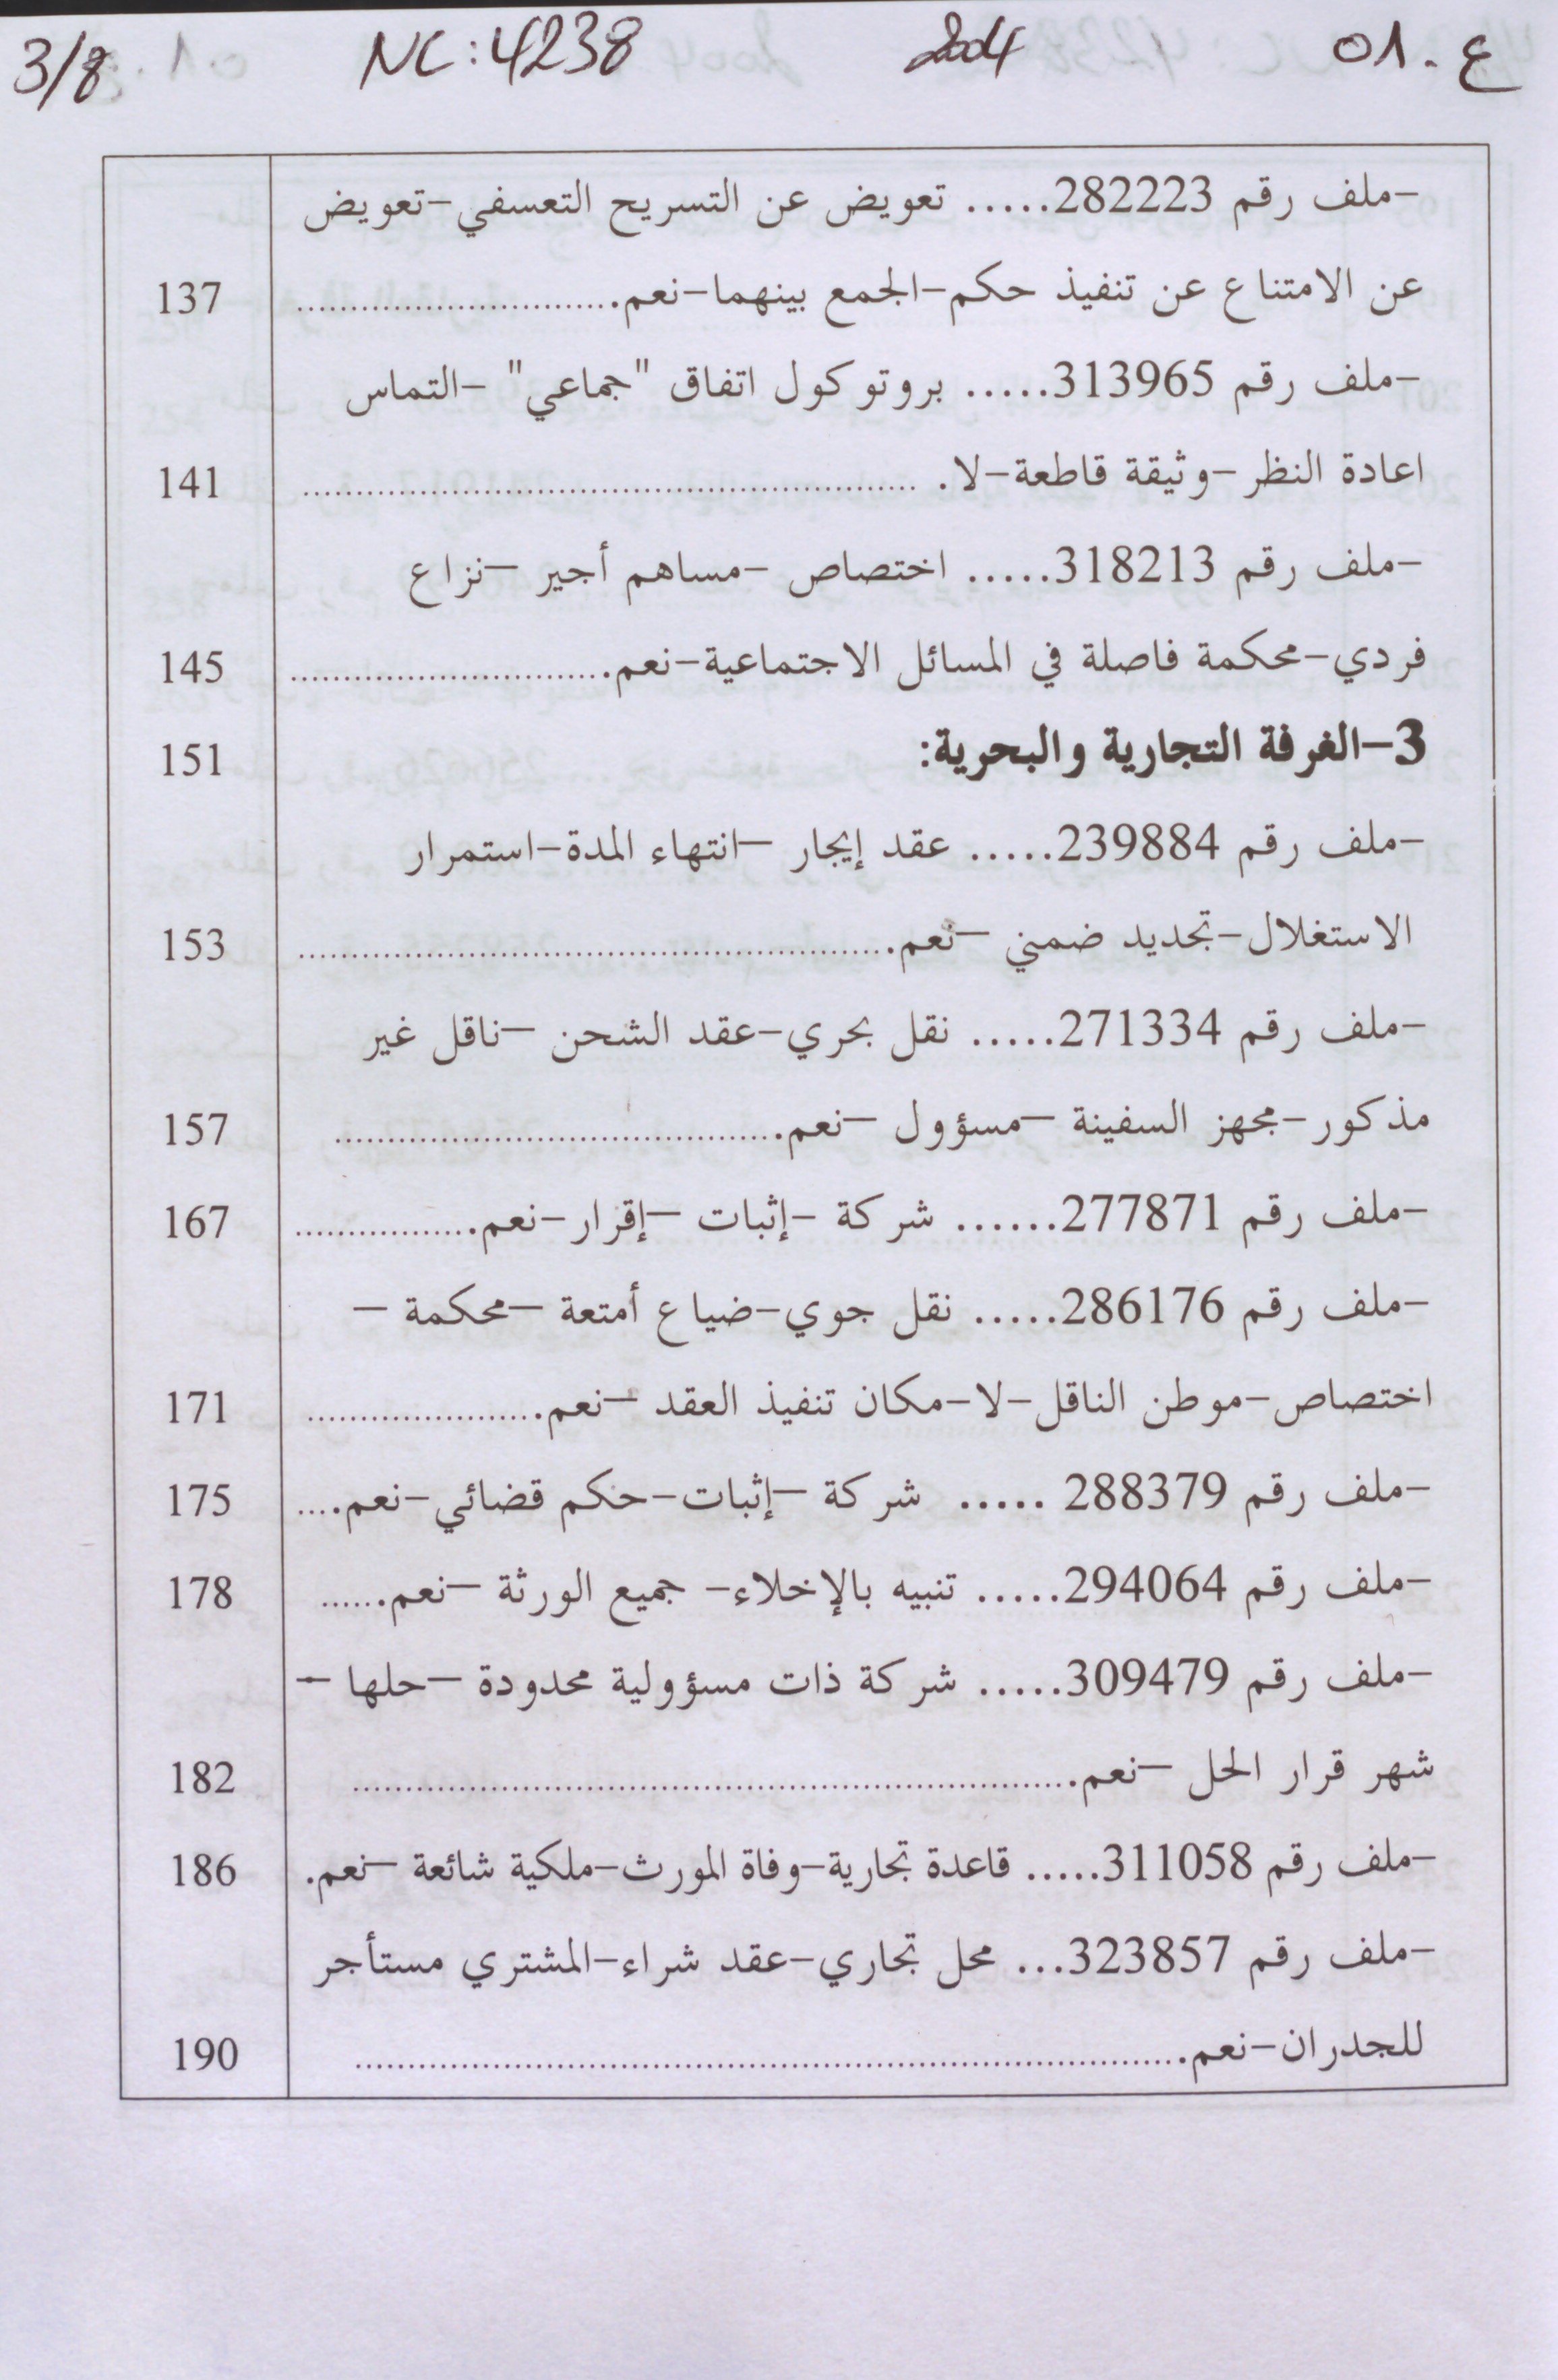 ع. 01 2004 NC: 4238 3/8
-ملف رقم 282223..... تعويض عن التسريح التعسفي-تعويض
عن الامتناع عن تنفيذ حكم-الجمع بينهما-نعم............................. 137
-ملف رقم 313965..... بروتوكول اتفاق "جماعي" -التماس
اعادة النظر-وثيقة قاطعة-لا. ................................................ 141
-ملف رقم 318213..... اختصاص -مساهم أجير –نزاع
فردي-محكمة فاصلة في المسائل الاجتماعية-نعم............................. 145
3-الغرفة التجارية والبحرية: 151
-ملف رقم 239884..... عقد إيجار –انتهاء المدة-استمرار
الاستغلال-تجديد ضمني –نعم.............................................. 153
-ملف رقم 271334..... نقل بحري-عقد الشحن –ناقل غير
مذكور-مجهز السفينة –مسؤول –نعم................................... 157
-ملف رقم 277871...... شركة -إثبات –إقرار-نعم................. 167
-ملف رقم 286176..... نقل جوي-ضياع أمتعة –محكمة –
اختصاص-موطن الناقل-لا-مكان تنفيذ العقد –نعم................... 171
-ملف رقم 288379 ..... شركة –إثبات-حكم قضائي-نعم..... 175
-ملف رقم 294064..... تنبيه بالإخلاء- جميع الورثة –نعم...... 178
-ملف رقم 309479..... شركة ذات مسؤولية محدودة –حلها –
شهر قرار الحل –نعم........................................................ 182
-ملف رقم 311058..... قاعدة تجارية-وفاة المورث-ملكية شائعة –نعم. 186
-ملف رقم 323857... محل تجاري-عقد شراء-المشتري مستأجر
للجدران-نعم................................................................ 190